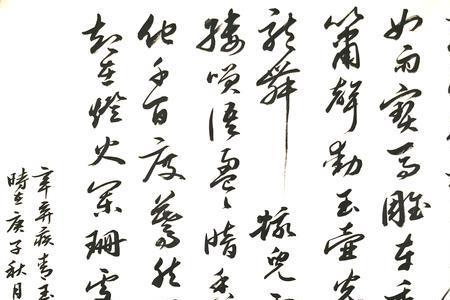 如雨寶馬雕車
簫聲動玉壺光
龍舞 蛾兒
縷笑語盈盈暗香
他千百度驀然
却在燈火闌珊處
辛棄疾青玉
時在庚子秋月